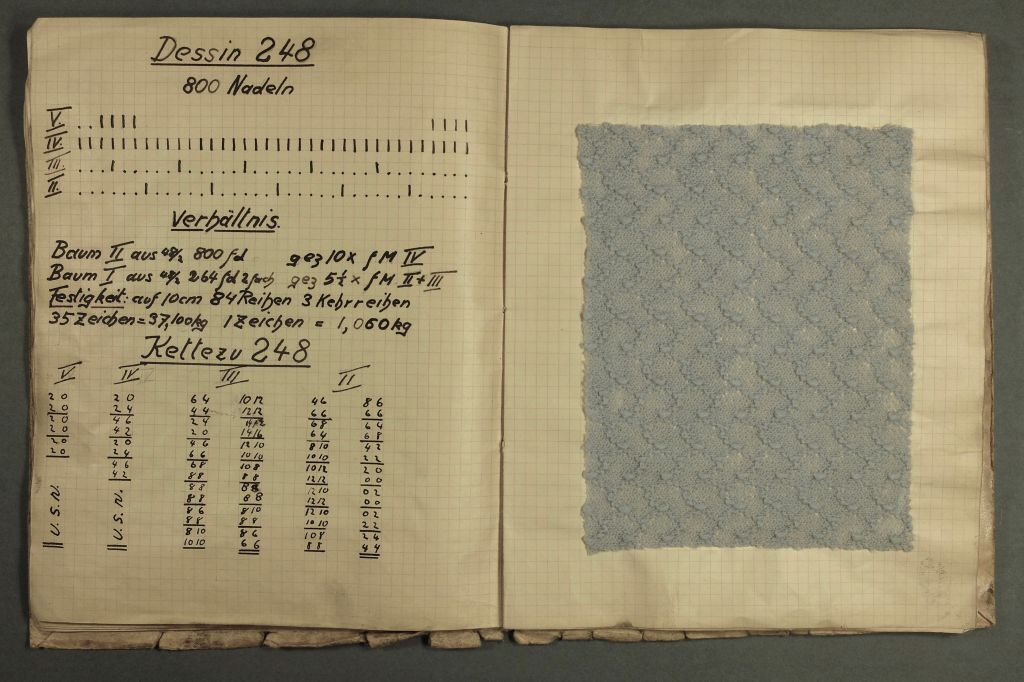 Dessin 248
800 Nadeln
V.
IV.
III.
II.
Verhältnis.
Baum II aus 800 fd gez 10 x f M IV
Baum I aus 264 fd 2fach gez 5½ x f M II + III
Festigkeit: auf 10cm 84 Reihen 3 Kehrreihen
35 Zeichen = 37,100kg 1 Zeichen = 1,060kg
Kette zu 248
V IV III II
2 0 2 0 6 4 10 12 4 6 8 6
2 0 2 4 4 4 12 12 6 6 6 6
2 0 4 6 2 4 6 8 6 4
2 0 4 2 2 0 14 16 6 4 6 8
2 0 2 0 4 6 12 10 8 10 4 2
2 0 2 4 6 6 10 10 10 10 2 2
4 6 6 8 10 8 10 12 2 0
4 2 8 8 8 8 12 12 0 0
8 8 8 8 12 10 0 2
8 8 8 8 12 12 0 0
8 6 8 10 12 10 0 2
8 8 8 8 10 10 2 2
8 10 8 6 10 8 2 4
10 10 6 6 8 8 4 4
U. S. N. U. S. N.